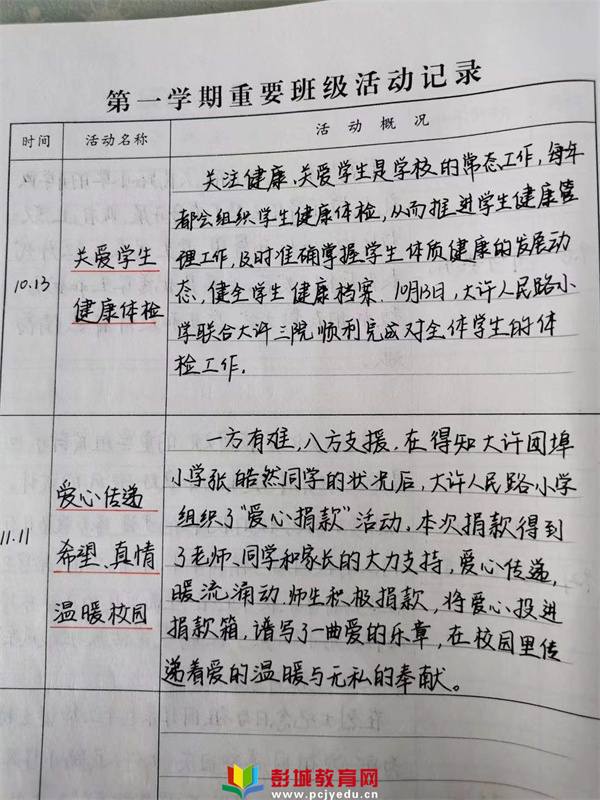 第一学期重要班级活动记录
时间
活动名称
活动概况
10.13
关爱学生
健康体检
关注健康、关爱学生是学校的常态工作,每年
都会组织学生健康体检,从而推进学生健康管
理工作,及时准确掌握学生体质健康的发展动
态,健全学生健康档案.10月13日,大许人民路小
学联合大许三院顺利完成对全体学生的体
检工作.
11.11
爱心传递
希望、真情
温暖校园
一方有难,八方支援,在得知大许团埠
小学张皓然同学的状况后,大许人民路小学
组织了“爱心捐款”活动,本次捐款得到
了老师、同学和家长的大力支持,爱心传递,
暖流涌动.师生积极捐款,将爱心投进
捐款箱,谱写了一曲爱的乐章,在校园里传
递着爱的温暖与无私的奉献。
彭城教育网
www.pcjyedu.cn